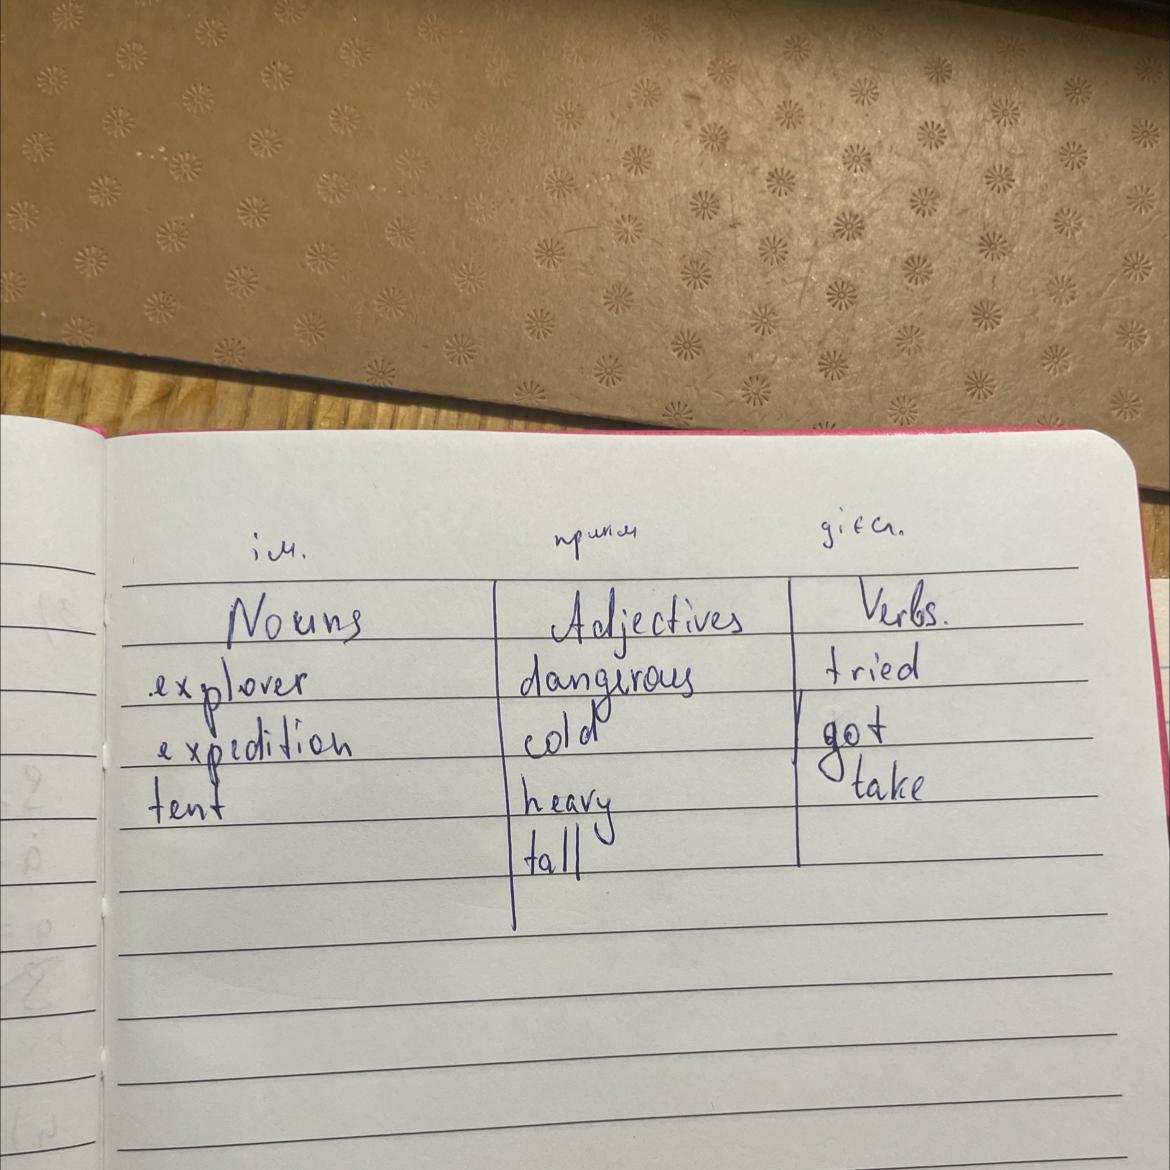 ім. прикм дієсл.
Nouns Adjectives Verbs.
explorer dangerous tried
expedition cold got
tent heavy take
tall